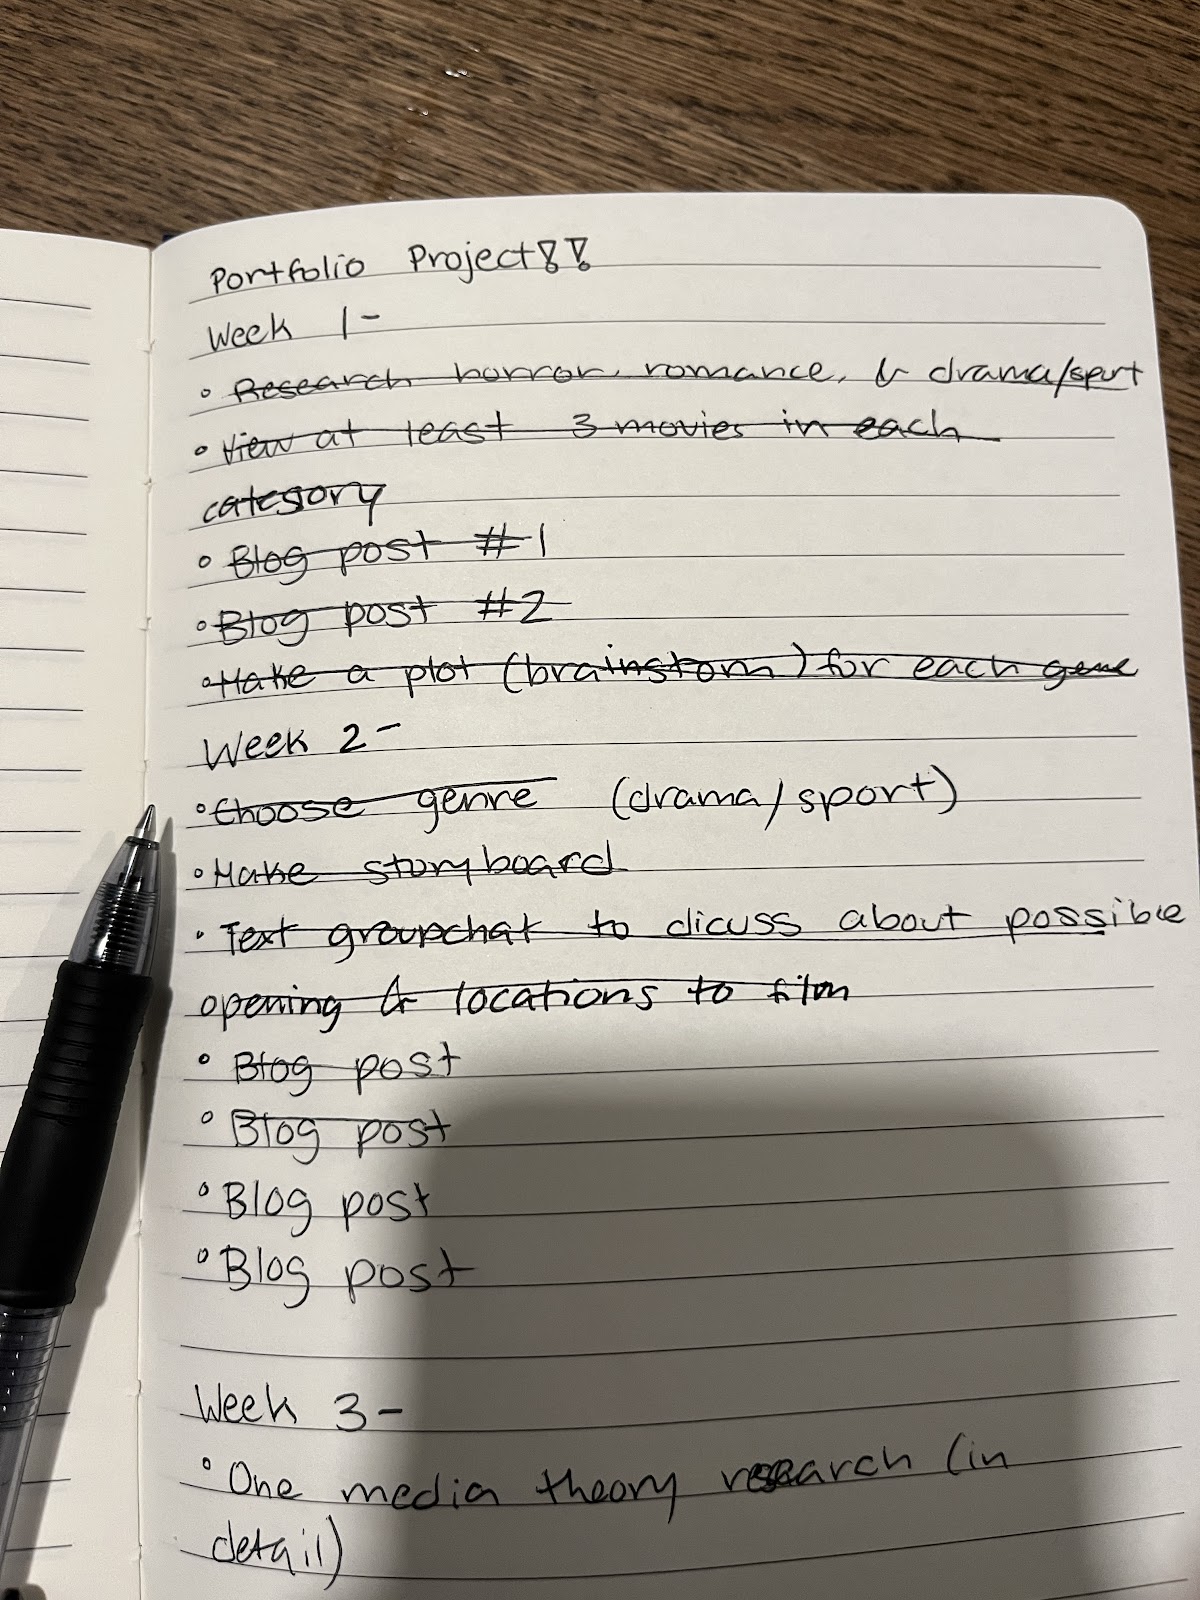 Portfolio Project!!
Week 1-
• Research horror, romance, & drama/sport
• View at least 3 movies in each
category
• Blog post #1
• Blog post #2
• Make a plot (brainstorm) for each genre
Week 2-
• Choose genre (drama/sport)
• Make storyboard
• Text groupchat to dicuss about possible
opening & locations to film
• Blog post
• Blog post
• Blog post
• Blog post
Week 3-
• One media theory research (in
detail)